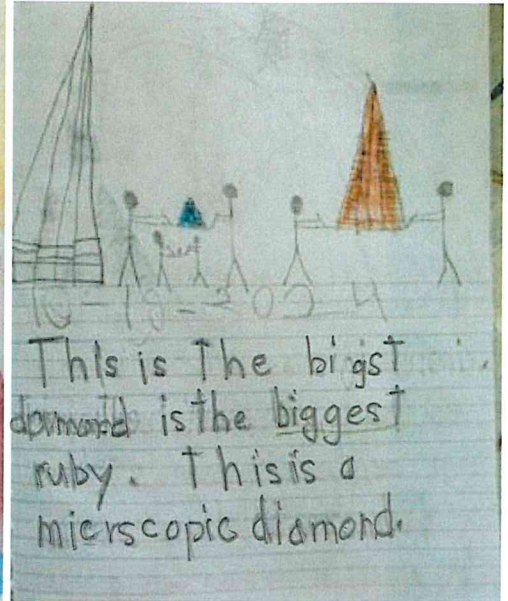 This is The bigst
diomond is the biggest
ruby. This is a
mierscopic diamond.